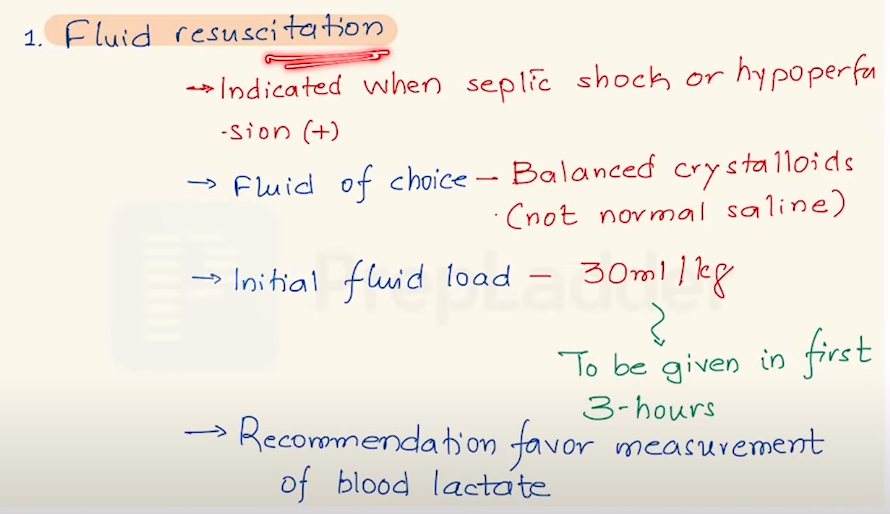 1. Fluid resuscitation
→ Indicated when septic shock or hypoperfu
-sion (+)
→ Fluid of choice - Balanced crystalloids
(not normal saline)
→ Initial fluid load - 30ml/kg
To be given in first
3-hours
→ Recommendation favor measurement
of blood lactate
PrepLadder